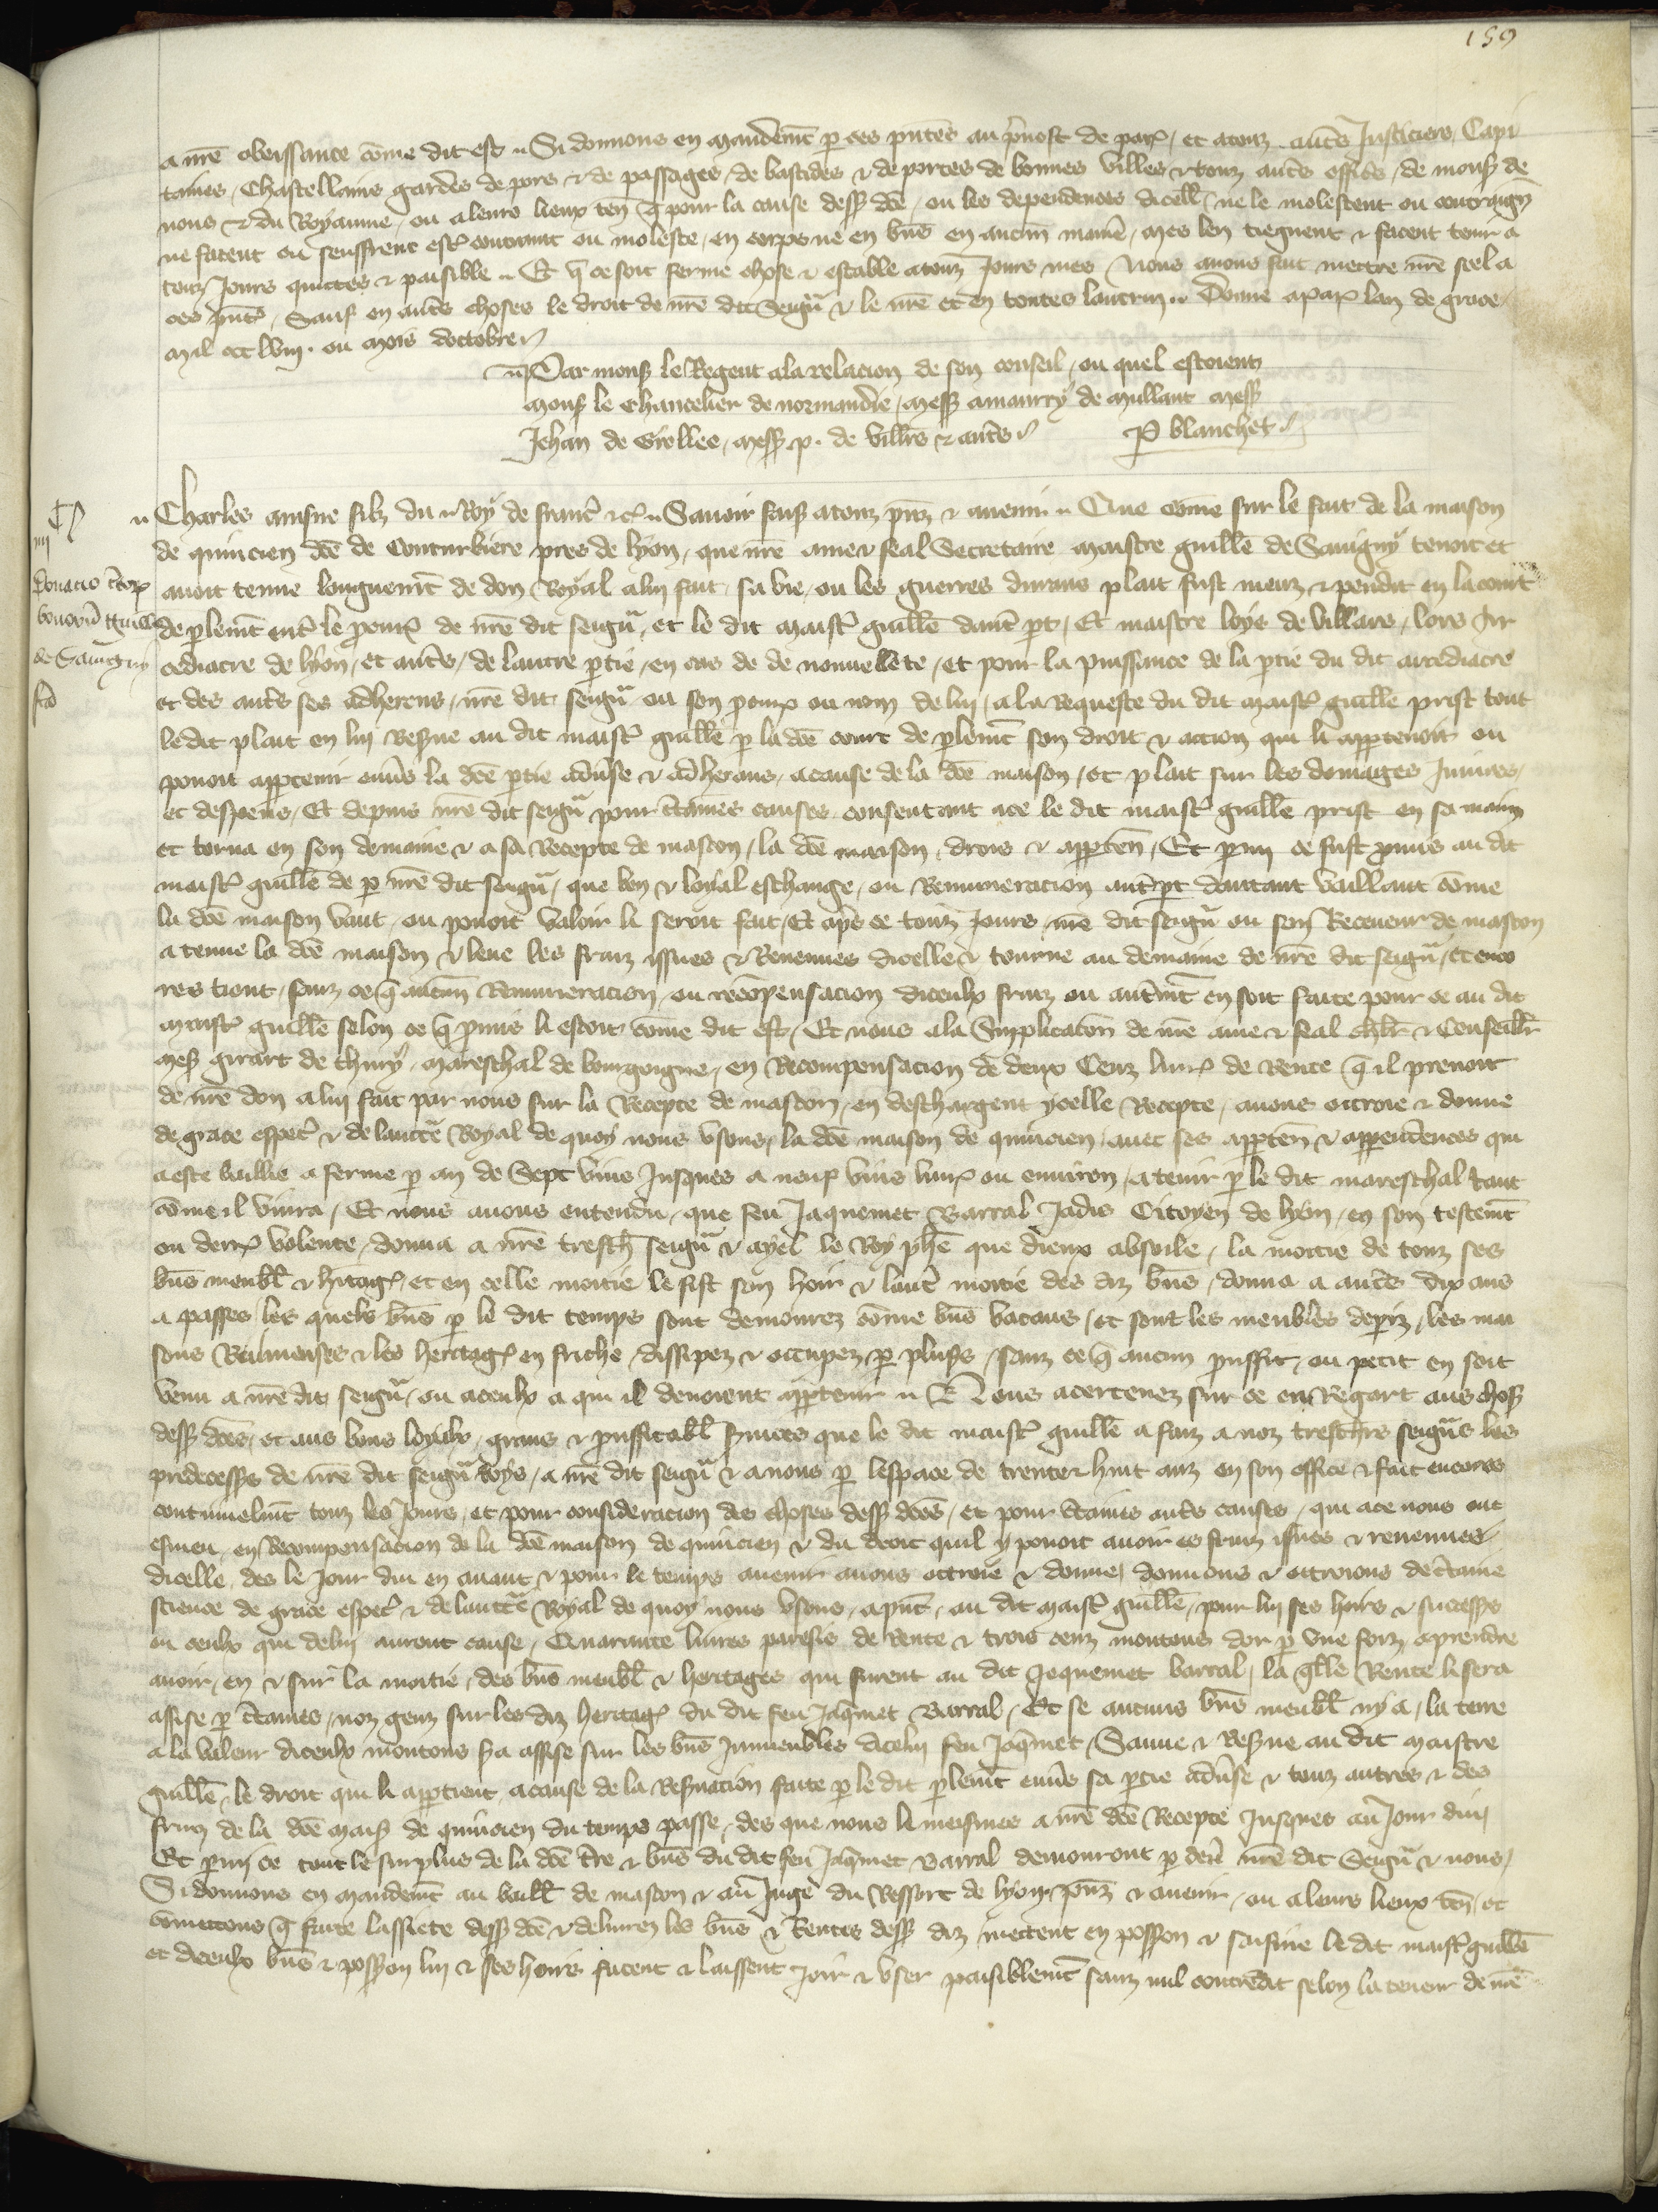 159
a nre obeissance come dit est Si donnons en mandemt p ces pntes au pruost de par et a touz autes Justiciers Capi
taines Chastellains gardes de pors & de passages de bastides & de portes de bonnes villes & touz autes offics de mons de
nous & du Royaume ou a leurs lieux ten q pour la cause dess de ou les dependences dicell ne le molestent ou contraign
ne facent ou seuffrent est contraint ou moleste en corps ne en bns en aucun manie mes len tiegnent & facent tenir a
touz jours quictes & paisible Et q ce soit ferme chose & estable a touz jours mes Nous auons fait mettre nre seel a
ces pnts Sauf en autes choses le droit de nre dit Seign & le nre et en toutes lautrui Donne a par lan de grace
mil ccc lviij ou mois doctobre
Par mons le Regent a la relacion de son conseil ou quel estoient
mons le chancelier de normandie mess amaurry de mullant mess
Jehan de Grollee mess p. de villrs & autes P blanchet
Charles ainsne filz du Roy de franc &c Sauoir fais a touz pnz & auenir Que come sur le fait de la maison
de quincien de de Conturbiere pres de lyon que nre ame & feal Secretaire maistre guille de Sauigny tenoit et
auoit tenue longuemt de don Royal a lui fait sa vie ou les guerres durans plait fust meuz & pendit en la court
de plemt ente le pcur de nre dit seign et le dit maist guille dune pt Et maistre loys de villars lors Ar
cediacre de lyon et autes de lautre ptie en cas de de nouuellete et pour la puissance de la ptie du dit arcediacre
et des autes ses adherens nre dit seign ou son pcur ou nom de lui a la Requeste du dit maist guille prist tout
le dit plait en lui Resue au dit maist guille p la de court de plemt son droit & accion qui li apptenoit ou
pouoit apptenir enus la de ptie aduse & adherans a cause de la de maison et plait sur les domages Iniures
et despens Et depuis nre dit seign pour ctaines causes consentant a ce le dit maist guille prist en sa main
et torna en son demaine & a sa Recepte de mascon la de maison drois & appten Et pmi ce fust pmis au dit
maist guille de p nre dit seign que bon & loyal eschange ou Remuneracion autpt dautant vaillant come
la de maison vaut ou pouoit valoir li seroit fait Et aps ce touz jours nre dit seign ou son Receueur de mascon
a tenue la de maison & leue les fruiz yssues & Reuenues dicelle & tourne au demaine de nre dit seign et enco
res tient sanz ce q aucun Remuneracion ou recopensacion diceulx fruiz ou autmt en soit faite pour ce au dit
maist guille selon ce q pmis li estoit come dit est Et nous a la Supplicacion de nre ame & feal chlr & Conseillr
mes girart de thury mareschal de bourgongne en Recompensacion de deux Cenz liur de Rente q il prenoit
de nre don a lui fait par nous sur la Recepte de mascon en deschargent ycelle Recepte auons ottroie & donne
de grace espec & de lauctte Royal de quoy nous vsons la de maison de quincien auec ses apptn & appendences qui
a este baillie a ferme p an de Sept vins jusques a neuf vins liur ou enuiron a tenir p le dit mareschal tant
come il viura Et nous auons entendu que feu Jaquemet Barral Jadis Citoyen de lyon en son testemt
ou dern volente donna a nre tresch seign & ayel le Roy phe que dieux absoile la moitie de touz ses
bns meubl & hitag et en celle moitie le fist son hoir & laute moitie des diz bns donna a autes dix ans
a passes les quels bns p le dit temps sont demourez come bns vacans et sont les meubles depiz les mai
sons Ruineuses & les heritag en friche dissipez & occupez p plusrs sanz ce q aucun prouffit ou petit en soit
venu a nre dit seign ou a ceulx a qui il deuoient apptenir Nous acertenez sur ce en Regart aus chos
dess des et aus bons loyals grans & prouffitabl suices que le dit maist guille a faiz a noz treschrs seigns les
predecesss de nre dit seign Roys a nre dit seign & a nous p lespace de trente & huit anz en son office & fait encores
continuelmt touz les jours et pour consideracion des choses dess des et pour ctains autes causes qui a ce nous ont
esmeu en Recompensacion de la de maison de quincien & du droit quil y pouoit auoir es fruiz issues & reuenues
dicelle des le jour dui en auant & pour le temps auenir auons ottroie & donne donnons & ottroions de ctaine
science de grace espec & de lauctte Royal de quoy nous vsons a pnt au dit maist guille pour lui ses hoirs & succsss
ou ceulx qui de lui auront cause Quarante liures paresis de Rente & trois cenz moutons dor p vne foiz a prendre
auoir en & sur la moitie des bns meubl & heritages qui furent au dit Jaquemet barral la qlle Rente li sera
assise p ctaines noz genz sur les diz heritag du dit feu Jaqmet Barral Et se aucuns bns meubl ny a la terre
a la valeur diceulx moutons sa assise sur les bns Inmeubles dicelui feu Jaqmet Sauue & Resue au dit maistre
guille le droit qui li apptient a cause de la Resuacion faite p le dit plemt enus sa ptie aduse & touz autres & des
fruiz de la de mais de quincien du temps passe des que nous le meismes a nre de Recepte jusques au jour dui
Et pmi ce tout le surplus de la de tre & bns du dit feu Jaqmet Barral demouront p deu nre dit Seign & nous
Si donnons en mandemt au baill de mascon & au Juge du Ressort de lyon pnz & auenir ou a leurs lieux ten et
comettons q faite lassiete dess de & deliurez les bns & Rentes dess diz mettent en posson & saisine le dit maist guille
et diceulx bns & posson lui & ses hoirs facent & laissent joir & vser paisiblemt sanz nul contredit selon la teneur de nre
iiij
Donacio ctor
bonoru Guill
de Sauigny
fca